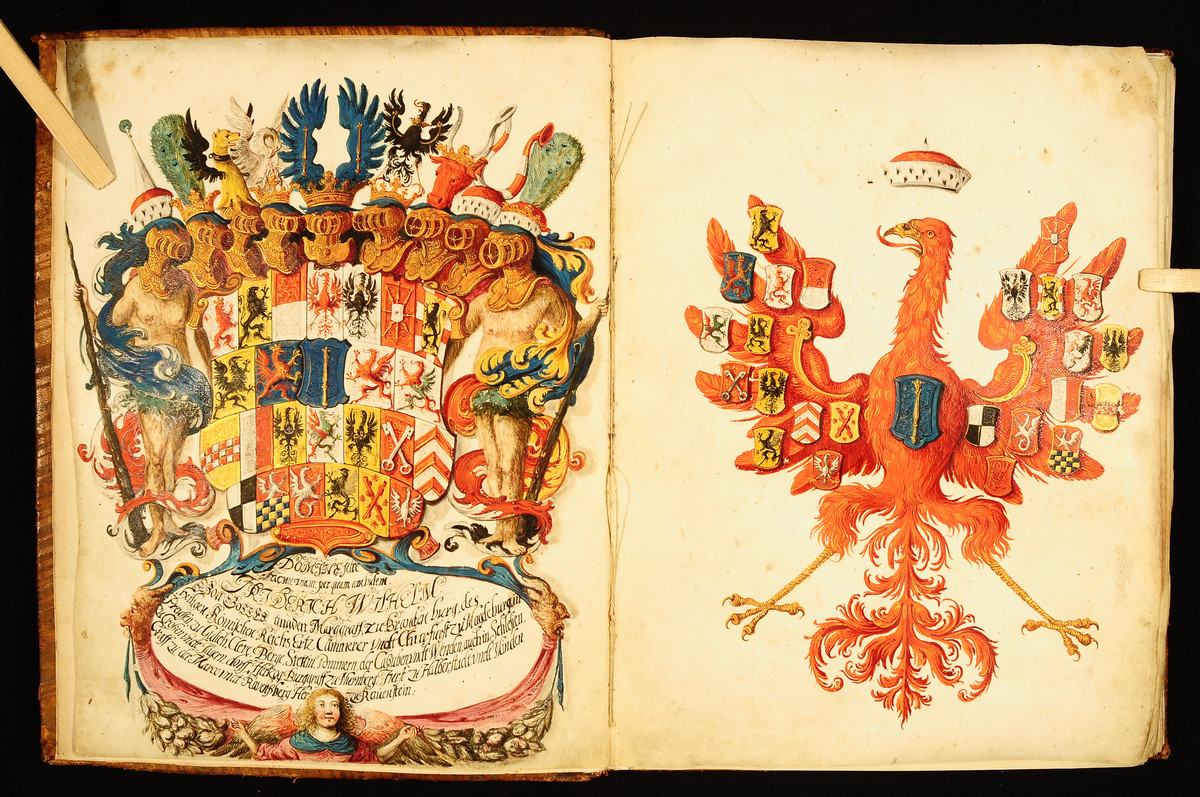 2
DOMINE fac
viam per quam ambulem
FRIDERICH WILHELM
Von Gottes gnaden Marggraff zu Brandenburg des
heiligen Römischen Reichs Ertz Cämmerer undt Churfürst zu Magdeburg in
Preußen zu Gülich Cleve Berge Stettin Pommern der Caßuben undt Wenden auch in Schlesien
Croßen undt Jägern dorff Hertzog Burggraff zu Nürnberg Fürst zu Halberstadt undt Minden
Graff zu der Marck und Ravensberg Her zu Ravenstein: